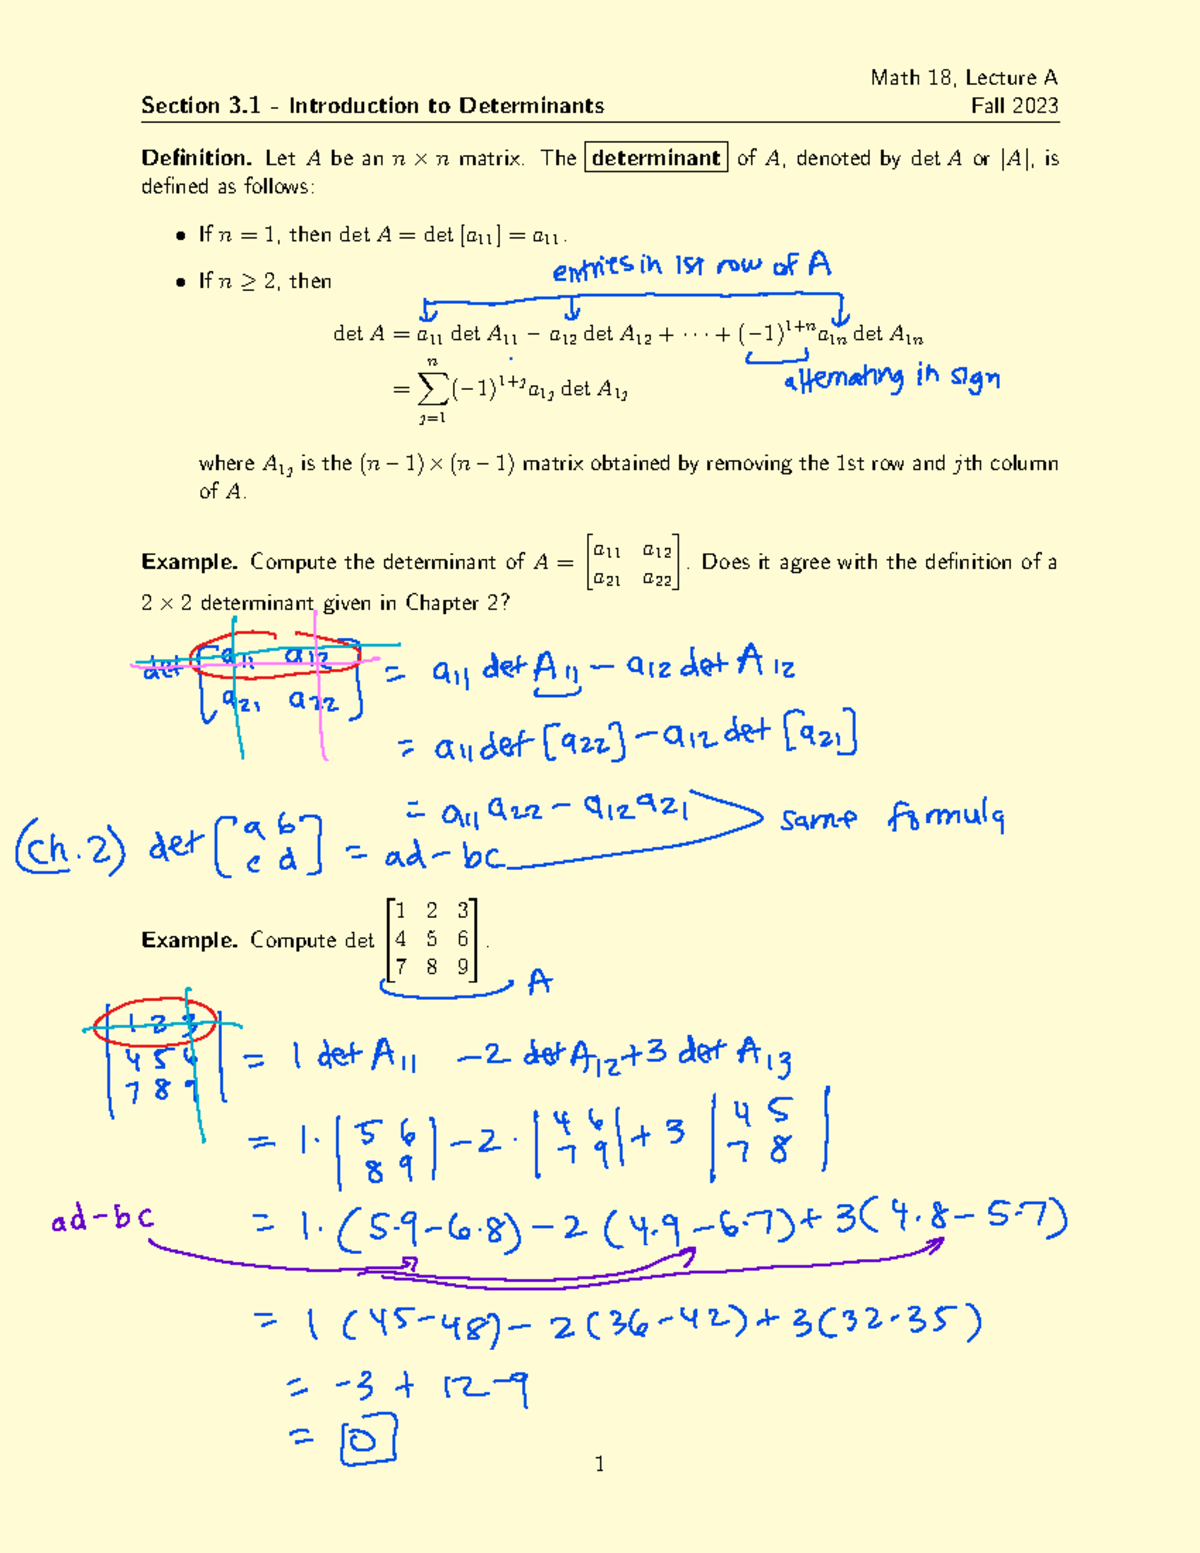 Math 18, Lecture A
Section 3.1 - Introduction to Determinants Fall 2023
Definition. Let A be an n × n matrix. The determinant of A, denoted by det A or |A|, is
defined as follows:
• If n = 1, then det A = det [a₁₁] = a₁₁.
entries in 1st row of A
• If n ≥ 2, then
det A = a₁₁ det A₁₁ − a₁₂ det A₁₂ + ··· + (−1)¹⁺ⁿa₁ₙ det A₁ₙ
alternating in sign
= ∑ⁿⱼ₌₁ (−1)¹⁺ʲa₁ⱼ det A₁ⱼ
where A₁ⱼ is the (n − 1) × (n − 1) matrix obtained by removing the 1st row and jth column
of A.
Example. Compute the determinant of A = [a₁₁ a₁₂; a₂₁ a₂₂]. Does it agree with the definition of a
2 × 2 determinant given in Chapter 2?
det [a₁₁ a₁₂; a₂₁ a₂₂] = a₁₁ det A₁₁ − a₁₂ det A₁₂
= a₁₁ det [a₂₂] − a₁₂ det [a₂₁]
= a₁₁ a₂₂ − a₁₂ a₂₁
same formula
(Ch.2) det [a b; c d] = ad − bc
Example. Compute det [1 2 3; 4 5 6; 7 8 9].
A
|1 2 3; 4 5 6; 7 8 9| = 1 det A₁₁ − 2 det A₁₂ + 3 det A₁₃
= 1·|5 6; 8 9| − 2·|4 6; 7 9| + 3 |4 5; 7 8|
ad − bc = 1·(5·9 − 6·8) − 2 (4·9 − 6·7) + 3(4·8 − 5·7)
= 1 (45 − 48) − 2(36 − 42) + 3(32 - 35)
= −3 + 12 − 9
= 0
1